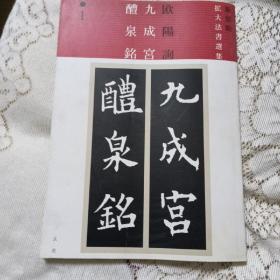 拡大法書選集
欧陽詢
九成宮
醴泉銘
1
九成宮
醴泉銘